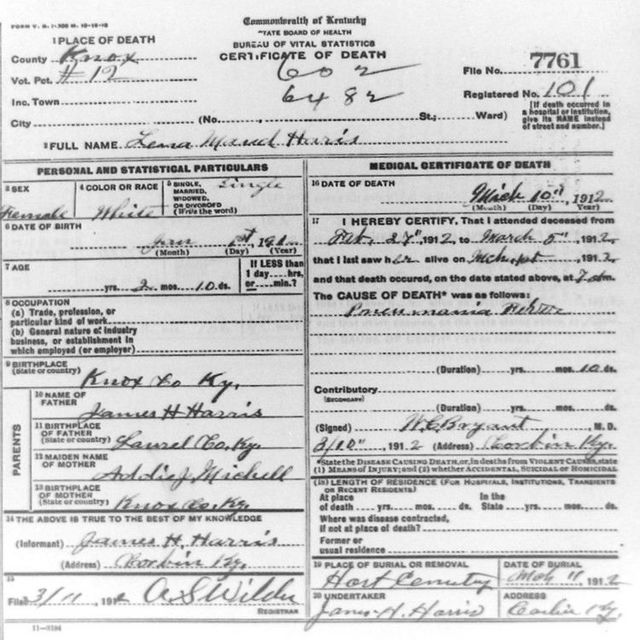 FORM V. S.
Commonwealth of Kentucky
STATE BOARD OF HEALTH
BUREAU OF VITAL STATISTICS
CERTIFICATE OF DEATH
602
6482
1 PLACE OF DEATH
County Knox
Vot. Pct. #12
Inc. Town
City (No. St.; Ward)
File No. 7761
Registered No. 101
[If death occurred in a hospital or institution, give its NAME instead of street and number.]
2 FULL NAME Lena Harris
PERSONAL AND STATISTICAL PARTICULARS
3 SEX Female
4 COLOR OR RACE White
5 SINGLE, MARRIED, WIDOWED, OR DIVORCED (Write the word) Single
6 DATE OF BIRTH
Jan 1st
(Month) (Day) (Year)
7 AGE
yrs. 2 mos. 10 ds.
If LESS than 1 day....hrs. or.....min.?
8 OCCUPATION
(a) Trade, profession, or
particular kind of work
(b) General nature of industry
business, or establishment in
which employed (or employer)
9 BIRTHPLACE
(State or country)
Knox Co Ky.
PARENTS
10 NAME OF FATHER
James H Harris
11 BIRTHPLACE OF FATHER
(State or country) Laurel Co. Ky.
12 MAIDEN NAME OF MOTHER
Addie J Michell
13 BIRTHPLACE OF MOTHER
(State or country) Knox Co. Ky.
14 THE ABOVE IS TRUE TO THE BEST OF MY KNOWLEDGE
(Informant) James H. Harris
(Address) Corbin Ky.
15
Filed 3/11, 1912 A S Wilder
REGISTRAR
11-3184
MEDICAL CERTIFICATE OF DEATH
16 DATE OF DEATH
March 10th, 1912
(Month) (Day) (Year)
17 I HEREBY CERTIFY, That I attended deceased from
Feb. 27", 1912 to March 5", 1912
that I last saw her alive on 1912
and that death occured, on the date stated above, at 7 am.
The CAUSE OF DEATH* was as follows:
(Duration) yrs. mos. 10 ds.
Contributory
(SECONDARY)
(Duration) yrs. mos. ds.
(Signed) W C Bryant M. D.
3/10", 1912 (Address) Corbin Ky.
*State the DISEASE CAUSING DEATH, or, in deaths from VIOLENT CAUSES, state
(1) MEANS OF INJURY; and (2) whether ACCIDENTAL, SUICIDAL or HOMICIDAL
(18) LENGTH OF RESIDENCE (FOR HOSPITALS, INSTITUTIONS, TRANSIENTS
OR RECENT RESIDENTS)
At place of death yrs. mos. ds. In the State yrs. mos. ds.
Where was disease contracted,
if not at place of death?
Former or
usual residence
19 PLACE OF BURIAL OR REMOVAL
Hart Cemetery
DATE OF BURIAL
Mch 11, 1912
20 UNDERTAKER
James H. Harris
ADDRESS
Corbin Ky.